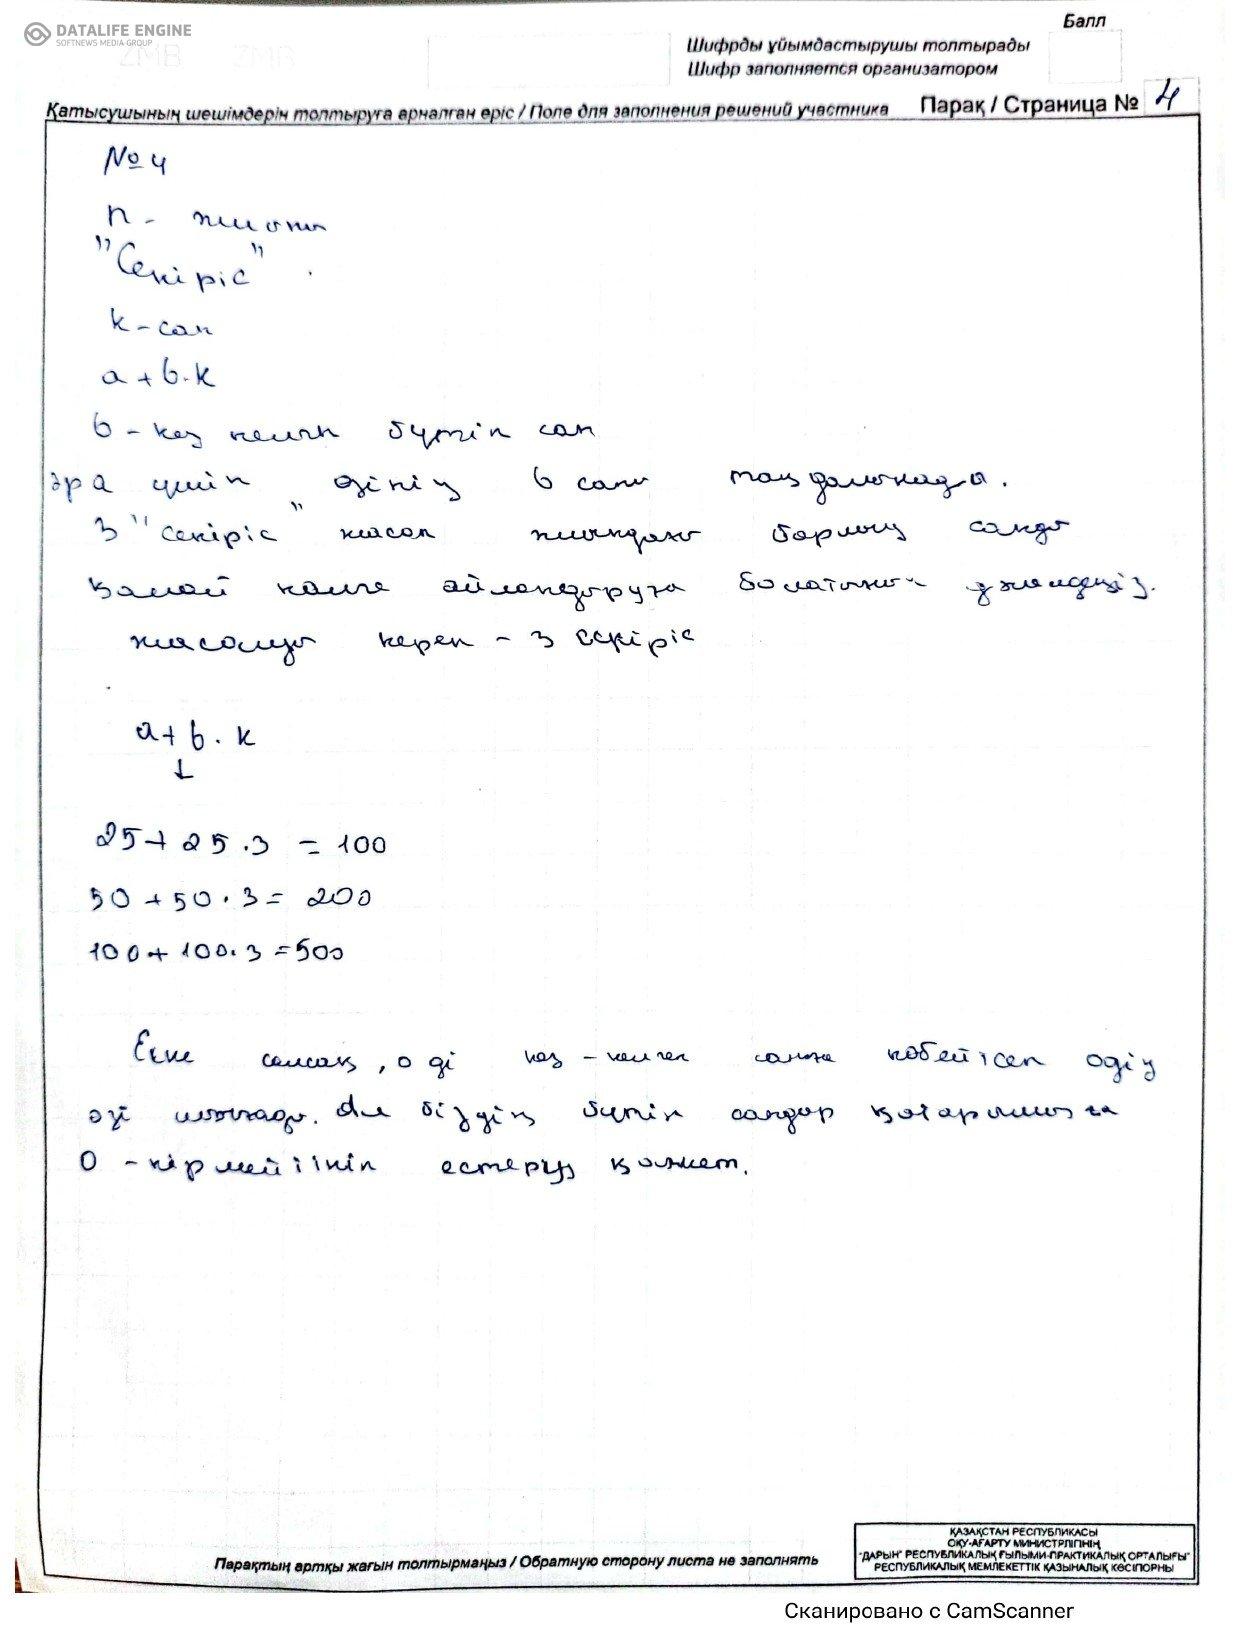 DATALIFE ENGINE
SOFTNEWS MEDIA GROUP
Балл
Шифрды ұйымдастырушы толтырады
Шифр заполняется организатором
Қатысушының шешімдерін толтыруға арналған өріс / Поле для заполнения решений участника Парақ / Страница № 4
№ 4
n - жиыны
"Секіріс"
k - сан
a + b·k
b - кез келген бүтін сан
әр a үшін өзінің b саны таңдалынады.
3 "секіріс" жасап жиындағы барлық санды
қалай нөлге айландыруға болатынын
жасалуы керек - 3 секіріс
a + b·k
↓
25 + 25·3 = 100
50 + 50·3 = 200
100 + 100·3 = 500
Еске салсақ, 0 ді кез - келген санға көбейтсек 0дің
өзі шығады. Ал біздің бүтін сандар қатарымызға
0 - кірмейтінін ескеруіңіз қажет.
Парақтың артқы жағын толтырмаңыз / Обратную сторону листа не заполнять
ҚАЗАҚСТАН РЕСПУБЛИКАСЫ
ОҚУ-АҒАРТУ МИНИСТРЛІГІНІҢ
"ДАРЫН" РЕСПУБЛИКАЛЫҚ ҒЫЛЫМИ-ПРАКТИКАЛЫҚ ОРТАЛЫҒЫ"
РЕСПУБЛИКАЛЫҚ МЕМЛЕКЕТТІК ҚАЗЫНАЛЫҚ КӘСІПОРНЫ
Сканировано с CamScanner